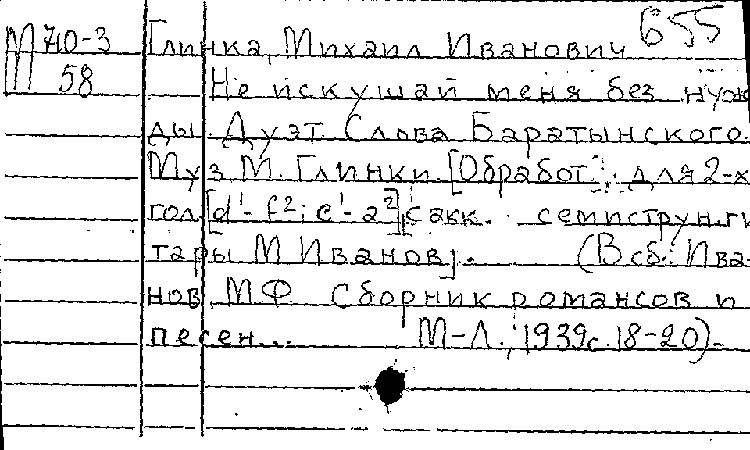 М 710-3 Глинка, Михаил Иванович 655
58 Не искушай меня без нуж
ды. Дуэт. Слова Баратынского.
Муз М. Глинки. [Обработ. для 2-х
гол [d'-f²; c'-a²] с акк. семиструн. ги
тары М Иванов]. (В сб.: Ива-
нов, МФ Сборник романсов и
песен... М-Л., 1939 с. 18-20).-